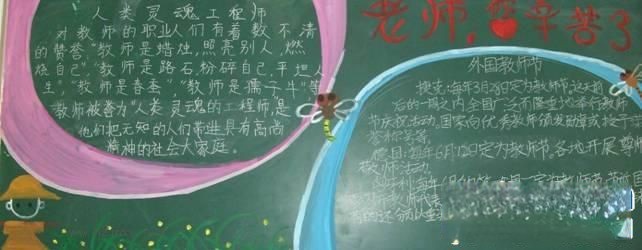 人类灵魂工程师
对教师的职业人们有着数不清
的赞誉"教师是蜡烛,照亮别人,燃
烧自己""教师是路石,粉碎自己,平坦人
生。""教师是春蚕""教师是孺子牛"等
教师被誉为"人类灵魂的工程师,是
他们把无知的人们带进具有高尚
精神的社会大家庭。
老师,辛苦了
外国教师节
捷克:每年3月28日定为教师节,这天前
后的一周之内全国广泛而隆重地举行教师
节庆祝活动。国家向优秀教师颁发勋章或授予荣
誉称号等。
德国:每年6月12日定为教师节。各地开展尊师
敬师活动。